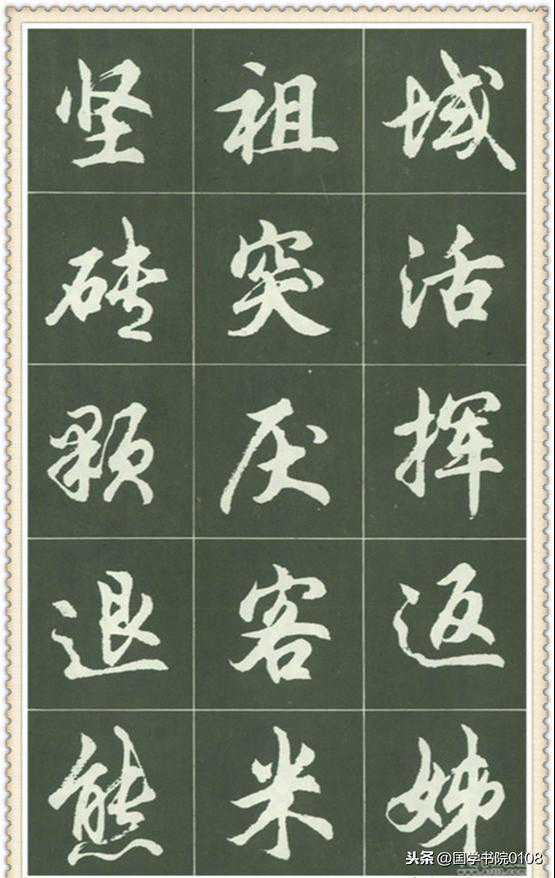 域活挥返姊
祖突厌客米
坚砖颗退熊
头条 @国学书院0108